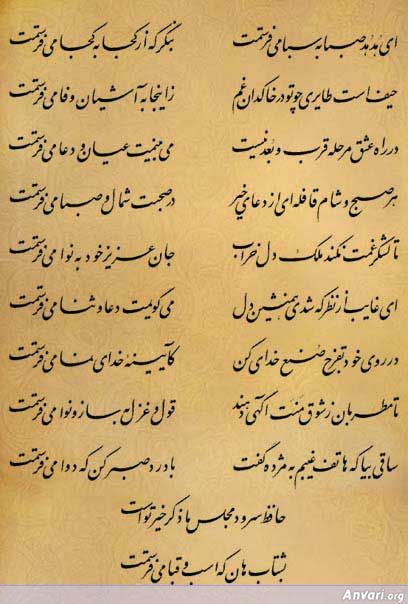 ای هدهد صبا به سبا می‌فرستمت بنگر که از کجا به کجا می‌فرستمت
حیف است طایری چو تو در خاکدان غم زاینجا به آشیان وفا می‌فرستمت
در راه عشق مرحله قرب و بعد نیست می‌بینمت عیان و دعا می‌فرستمت
هر صبح و شام قافله‌ای از دعای خیر در صحبت شمال و صبا می‌فرستمت
تا لشکر غمت نکند ملک دل خراب جان عزیز خود به نوا می‌فرستمت
ای غایب از نظر که شدی همنشین دل می‌گویمت دعا و ثنا می‌فرستمت
در روی خود تفرج صنع خدای کن کآیینهٔ خدای نما می‌فرستمت
تا مطربان ز شوق منت آگهی دهند قول و غزل به ساز و نوا می‌فرستمت
ساقی بیا که هاتف غیبم به مژده گفت با درد صبر کن که دوا می‌فرستمت
حافظ سرود مجلس ما ذکر خیر توست
بشتاب هان که اسب و قبا می‌فرستمت
Anvari.org